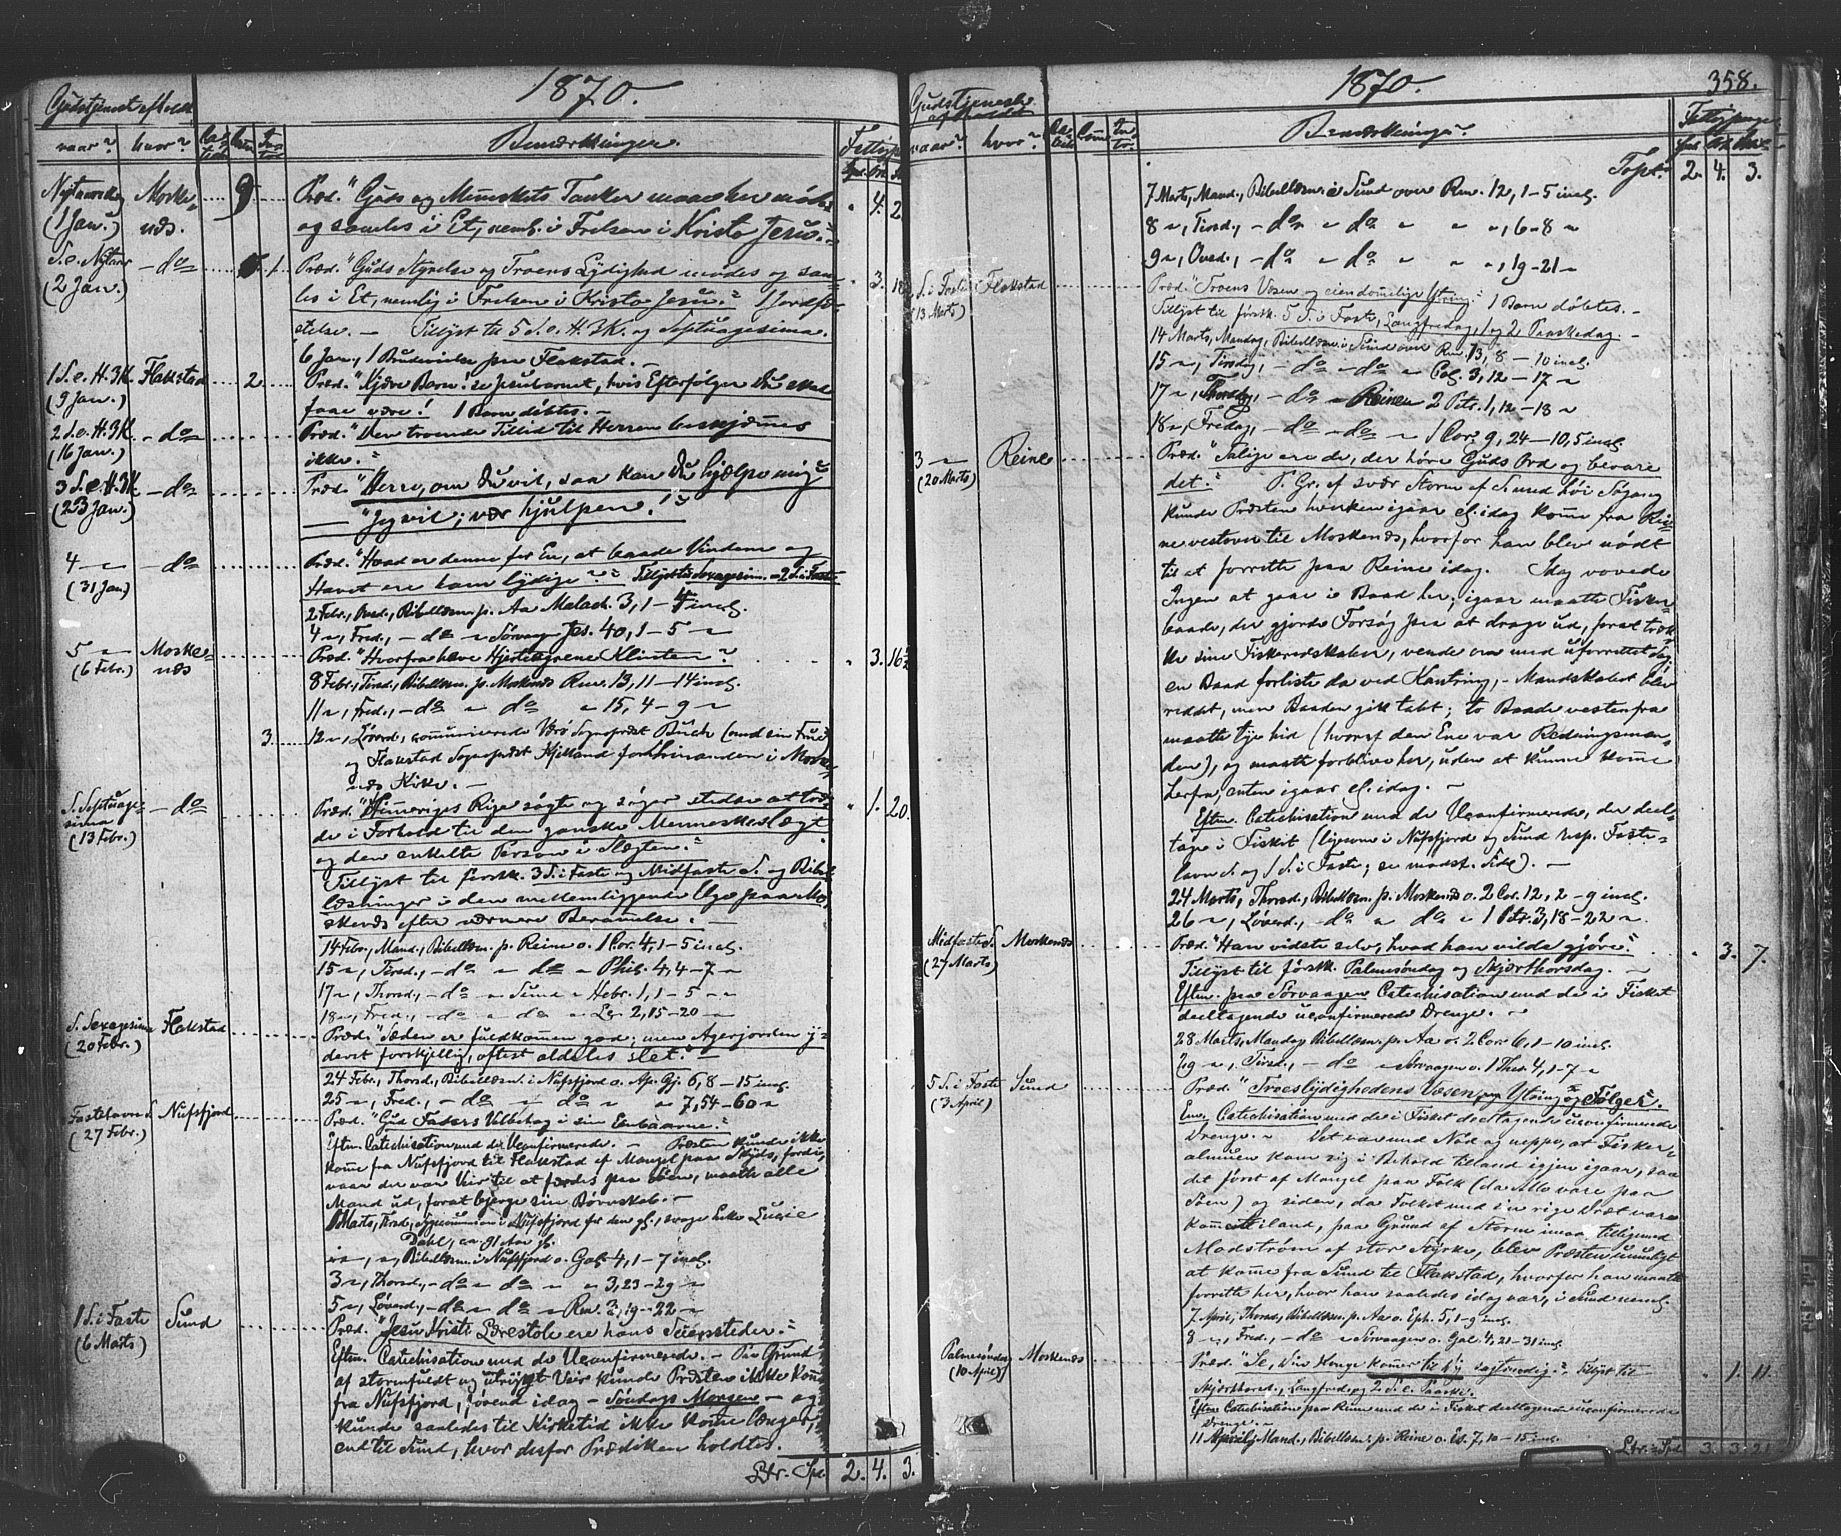 1870.
Gudstjenest afholdt
naar? hvor? Bemærkninger. Fattigp
Nytaarsdag Moske- 9 Præd. "Guds og Menneskets Tanker maae her mødes 4. 2
(1 Jan.) næs. og samles i Et, neml. i Frelsen i Kristo Jesu."
S. e. Nytaar — do 1. Præd. "Guds Styrelse og Troens Lydighed mødes og sam- 3. 18
(2 Jan.) les i Et, nemlig i Frelsen i Kristo Jesu." 1 Jordfæ-
stelse. — Tillyst til 5 S. e. H. 3K. og Septuagesima.
6 Jan., 1 Brudevielse paa Flakstad. —
1 S. e. H. 3K. Flakstad 2 Præd. "Kjære Barn! se Jesubarnet, hvis Efterfølger Du skal
(9 Jan.) faae være! 1 Barn døbtes. —
2 S. e. H. 3K. — do Præd. "Den troende Tillid til Herren beskjæmmes
(16 Jan.) ikke."
3 S. e. H. 3K — do Præd. "Herre, om Du vil, saa kan Du hjælpe mig"
(23 Jan.) — "Jeg vil; vær hjulpen!"
4 — — do Præd. "Hvad er denne for En, at baade Vindene og
(31 Jan.) Havet ere ham lydige?" Tillyst til Sexagesim. og 2 S. i Faste
2 Febr., Onsd., Bibellæsn. p. Aa Malach. 3, 1 – 4 incl.
4 " , Fred., — do " Sørvaag Jes. 40, 1 – 5 "
5 — Moske- Præd. "Hvorfra have Hjerteagrene Klinten"? 3. 16½
(6 Febr.) næs 8 Febr., Tirsd., Bibellæsn. p. Moskenæs Rom. 13, 11 – 14 incl.
11 " , Fred., — do " do " 15, 4 – 9 "
3. 12 " , Løverd., communicerede Værø Sognepræst Buch (med sin Frue)
og Flakstad Sognepræst Kjelland for hinanden i Moske-
næs Kirke. —
S. Septuage- — do Præd. "Himmeriges Rige søgte og søger stedse at træ- 1. 20.
sima de i Forhold til den ganske Menneskeslægt
(13 Febr.) og den enkelte Person i Slægten."
Tillyst til førstk. 3 S. i Faste og Midfaste S. og Bibel
læsninger i den mellemliggende Uge paa Mo-
skenæs efter nærmere Berammelse. —
14 Febr., Mand., Bibellæsn. p. Reine o. 1 Cor. 4, 1 – 5 incl.
15 " , Tirsd., — do " do " Phil. 4, 4 – 7 "
17 " , Thorsd., — do " Sund " Hebr. 1, 1 – 5 "
18 " , Fred., — do " do " 2, 15 – 20 "
S. Sexagesima Flakstad Præd. "Sæden er fuldkommen god; men Agerjorden y-
(20 Febr.) derst forskjellig, oftest aldeles slet." —
24 Febr., Thorsd., Bibellæsn. i Nufsfjord o. Ap. Gj. 6, 8 – 15 incl.
25 " , Fred., — do " do " 7, 54 – 60 "
Fastelavns S. Nufsfjord Præd. "Gud Faders Velbehag i sin Eenbaarne."
(27 Febr.) Efterm. Catechisation med de Uconfirmerede. — Præsten kunde ikke
komme fra Nufsfjord til Flakstad af Mangel paa Skyds, fordi,
naar der var Veir til at færdes paa Søen, maatte alle
Mand ud, forat bjerge sin Børnskab. —
1 Marts, Tirsd., Sygecommunion i Nufsfjord for den gl., svage Enke Lucie
Dahl, ca. 91 Aar gl.
" " , Bibellæsn. i Nufsfjord o. Gal. 4, 1 – 7 incl.
3 " , Thorsd., — do " do " " 3, 23 – 29 "
5 " , Løverd., — do " do " Rom. 3, 19 – 22 "
1 S. i Faste Sund Præd. "Jesu Kristi Lærestole ere hans Seierssteder."
(6 Marts) Efterm. Catechisation med de Uconfirmerede. — Paa Grund
af stormfuldt og utrygt Veir kunde Præsten ikke komme
fra Nufsfjord, førend idag — Søndags Morgen — og
kunde saaledes til Kirketid ikke komme længer,
end til Sund, hvor derfor Prædiken holdtes.
Ltr. Spd. 2. 4. 3.
1870. 358.
Gudstjeneste afholdt
naar? hvor? Bemærkninger. Fattigpenge
Tspt. 2. 4. 3.
7 Marts, Mand., Bibellæsn. i Sund over Rom. 12, 1 – 5 incl.
8 " , Tirsd., — do " do " " " , 6 – 8 "
9 " , Onsd., — do " do " " " , 19 – 21 "
2 S. i Faste Flakstad Præd. "Troens Væsen og eiendommelige Ytring." 1 Barn døbtes. —
(13 Marts) Tillyst til førstk. 5 S. i Faste, Langfredag, 1 og 2 Paaskedag. —
14 Marts, Mandag, Bibellæsn. i Sund over Rom. 13, 8 – 10 incl.
15 " , Tirsdg., — do " do " Col. 3, 12 – 17 "
17 " , Thorsdg., — do " Reinen 2 Petr. 1, 12 – 18 "
18 " , Fredag, — do " do " 1 Cor. 9, 24 – 10, 5 incl.
3 — Reine Præd. "Salige ere de, der høre Guds Ord og bevare
(20 Marts) det." P. Gr. af svær Storm af S. med høi Søgang
kunde Præsten hverken igaar el. idag komme fra Rei-
ne vestover til Moskenæs, hvorfor han blev nødt
til at forrette paa Reine idag. Idag vovede
Ingen at gaae i Baad her; igaar maatte Fisker-
baade, der gjorde Forsøg paa at drage ud, forat træk-
ke sine Fiskeredskaber, vende om med uforrettet Sag;
en Baad forliste da ved — Mandskabet blev
reddet, men Baaden gik tabt; to Baade vestenfra
maatte tye hid (hvoraf den Ene var Redningsman-
den), og maatte forblive her, uden at kunne komme
herfra, enten igaar el. idag. —
Efterm. Catechisation med de Uconfirmerede, der deel-
tage i Fisket (ligesom i Nufsfjord og Sund resp. Faste-
lavns S. og 1 S. i Faste; se modst. Side). —
24 Marts, Thorsd., Bibellæsn. p. Moskenæs o. 2 Cor. 12, 2 – 9 incl.
26 " , Løverd., — do " do " 1 Petr. 3, 18 – 22 "
Midfaste S. Moskenæs Præd. "Han vidste selv, hvad han vilde gjøre." 3. 7.
(27 Marts) Tillyst til førstk. Palmesøndag og Skjærthorsdag. —
Efterm. paa Sørvaagen Catechisation med de i Fisket
deeltagende uconfirmerede Drenge. —
28 Marts, Mandag Bibellæsn. p. Aa o. 2 Cor. 6, 1 – 10 incl.
29 " , Tirsd., — do " Sørvaagen o. 1 Thes. 4, 1 – 7 "
5 S. i Faste Sund Præd. "Troeslydighedens Væsen, Ytring og Følger".
(3 April) Em. Catechisation med de i Fisket deeltagende uconfirmerede
Drenge. — Det var med Nød og neppe, at Fisker-
almuen kom sig i Behold til land igjen igaar, saa
det først af Mangel paa Folk (da Alle vare paa
Søen) og siden, da Folket med en rig Dræt vare
komne iland, paa Grund af Storm imod tilligemed
Modstrøm af stor Styrke, blev Præsten umuligt
at komme fra Sund til Flakstad, hvorfor han maatte
forrette her, hvor han saaledes idag var, i Sund neml.
7 April, Thorsd., Bibellæsn. p. Aa o. Eph. 5, 1 – 9 incl.
8 " , Fred., — do " Sørvaagen o. Gal. 4, 21 – 31 incl.
Palmesøndag Moskenæs Præd. "Se, din Konge kommer til dig sagtmodig." Tillyst til 1. 11.
(10 April) Skjærthorsd., Langfred. og 2 S. e. Paaske.
Efterm. Catechisation paa Reine med de i Fisket deeltagende uconfirmerede
Drenge. —
11 April, Mand., Bibellæsn. p. Reine o. Es. 7, 10 – 15 incl.
Ltr. Spd. 3. 3. 21